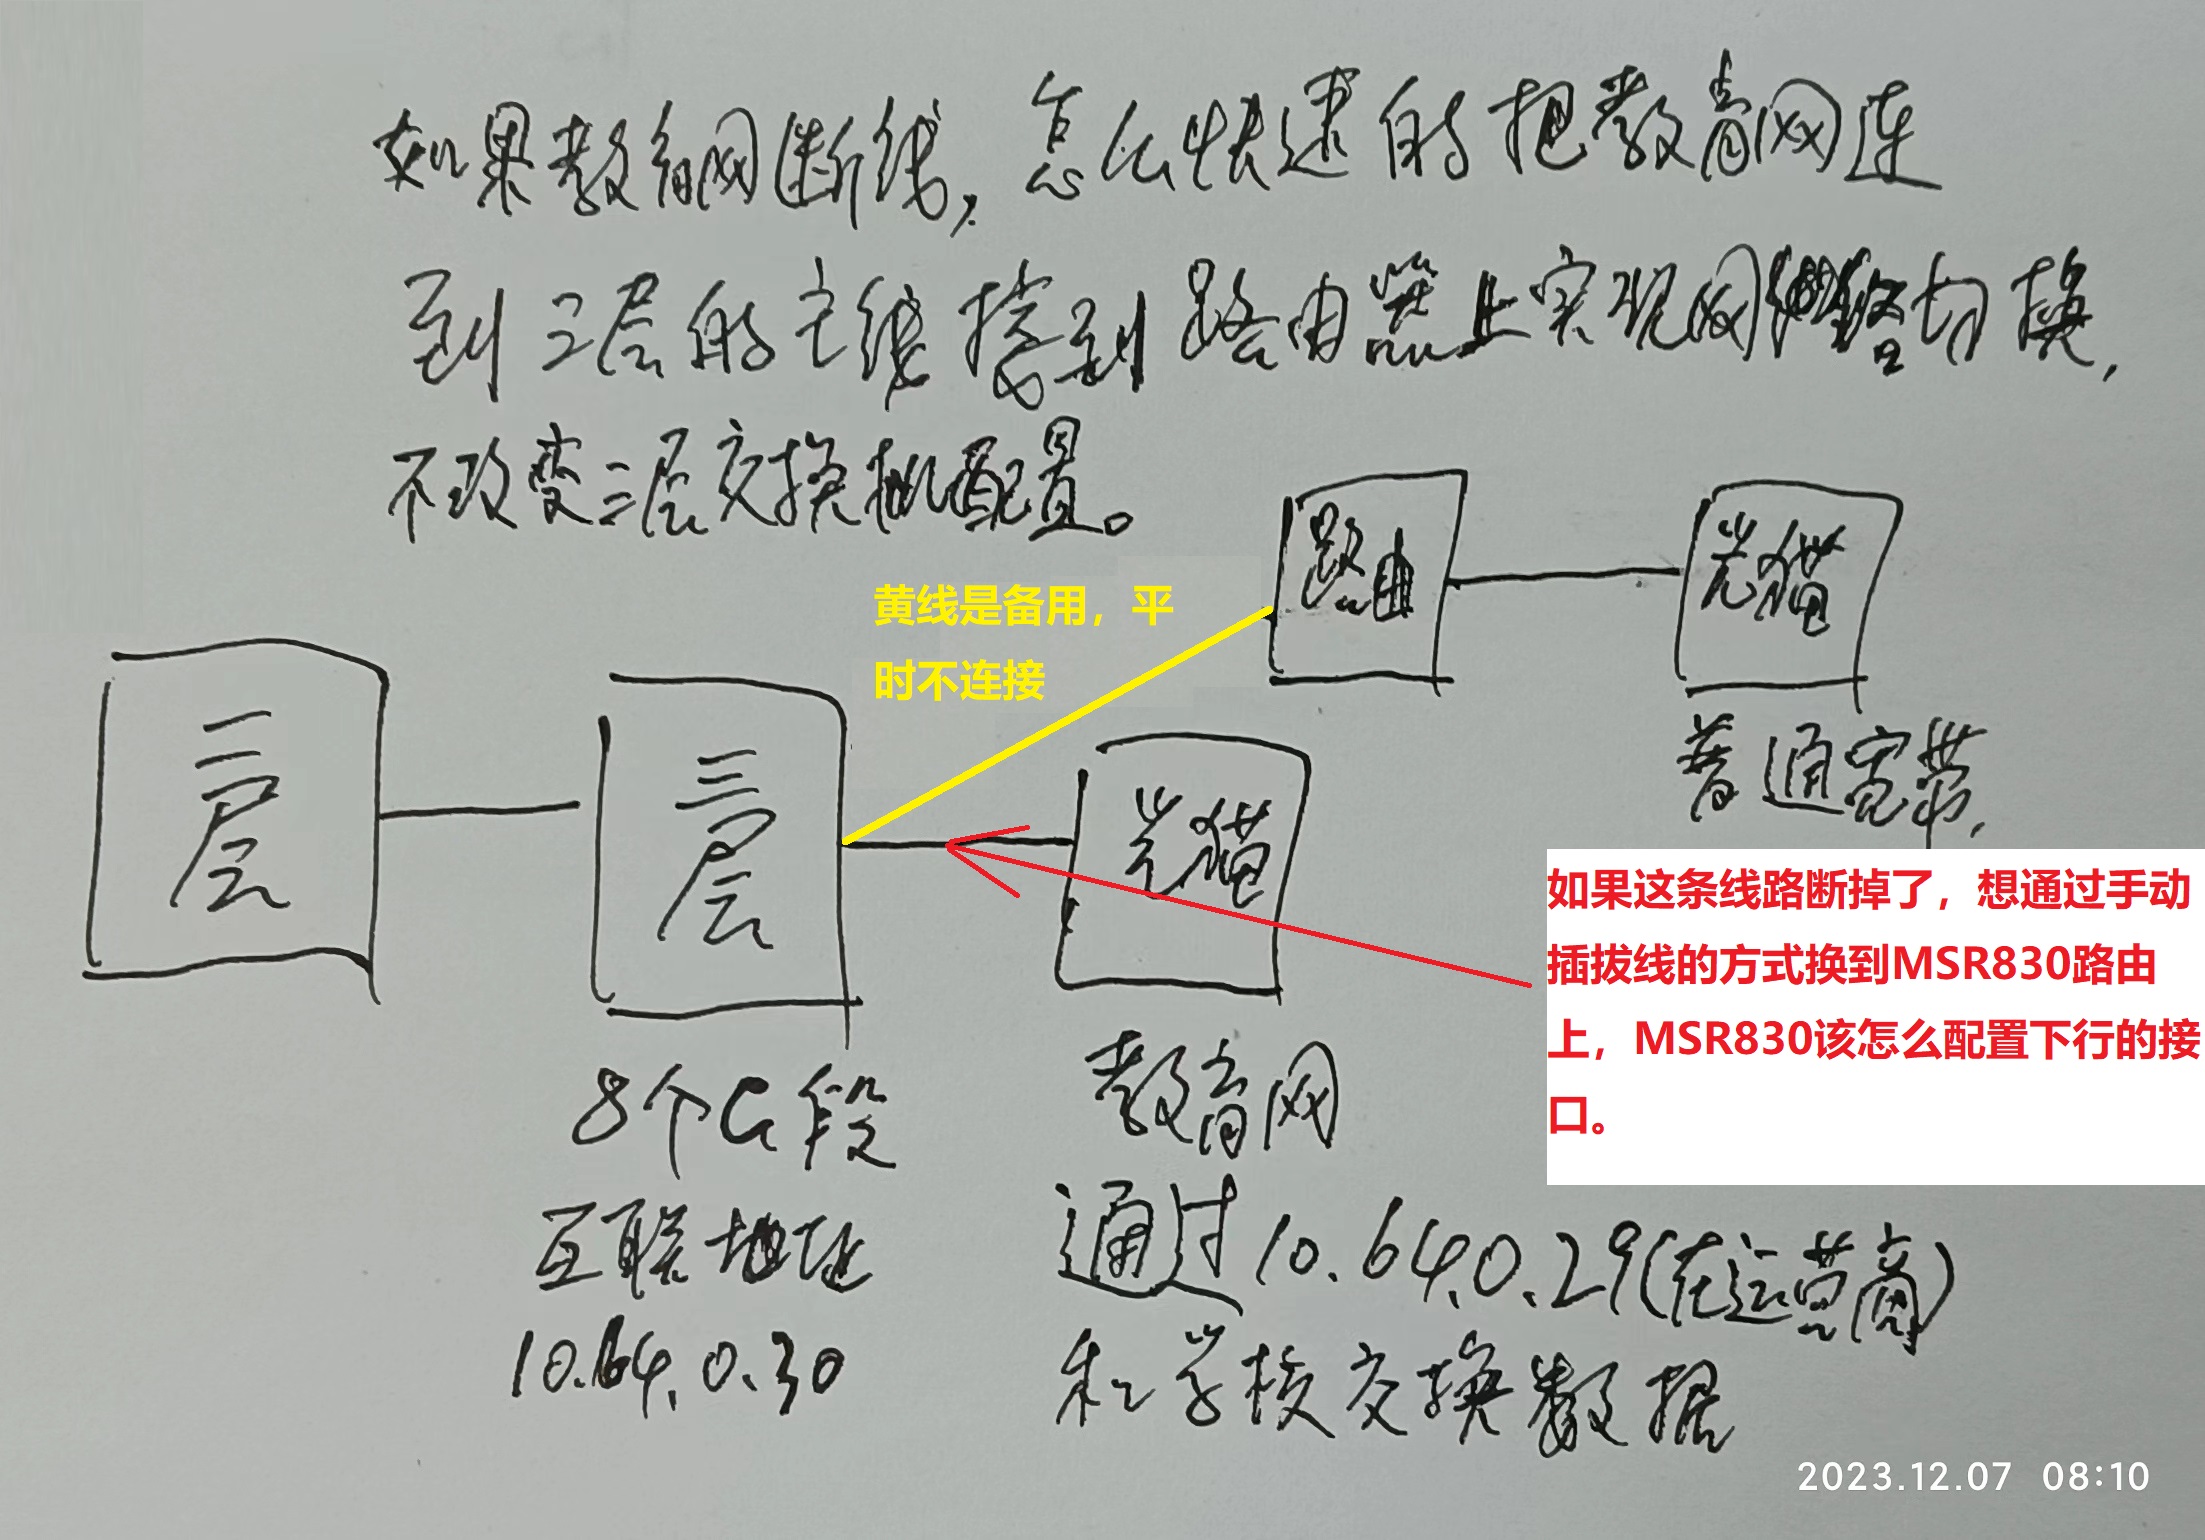 如果教育网断线,怎么快速的把教育网连
到三层的主线接到路由器上实现网络切换,
不改变三层交换机配置。
路由
光猫
黄线是备用,平
时不连接
普通宽带,
二层
三层
光猫
如果这条线路断掉了,想通过手动
插拔线的方式换到MSR830路由
上,MSR830该怎么配置下行的接
口。
8个C段
互联地址
10.64.0.30
教育网
通过10.64.0.29(在运营商)
和学校交换数据
2023.12.07 08:10